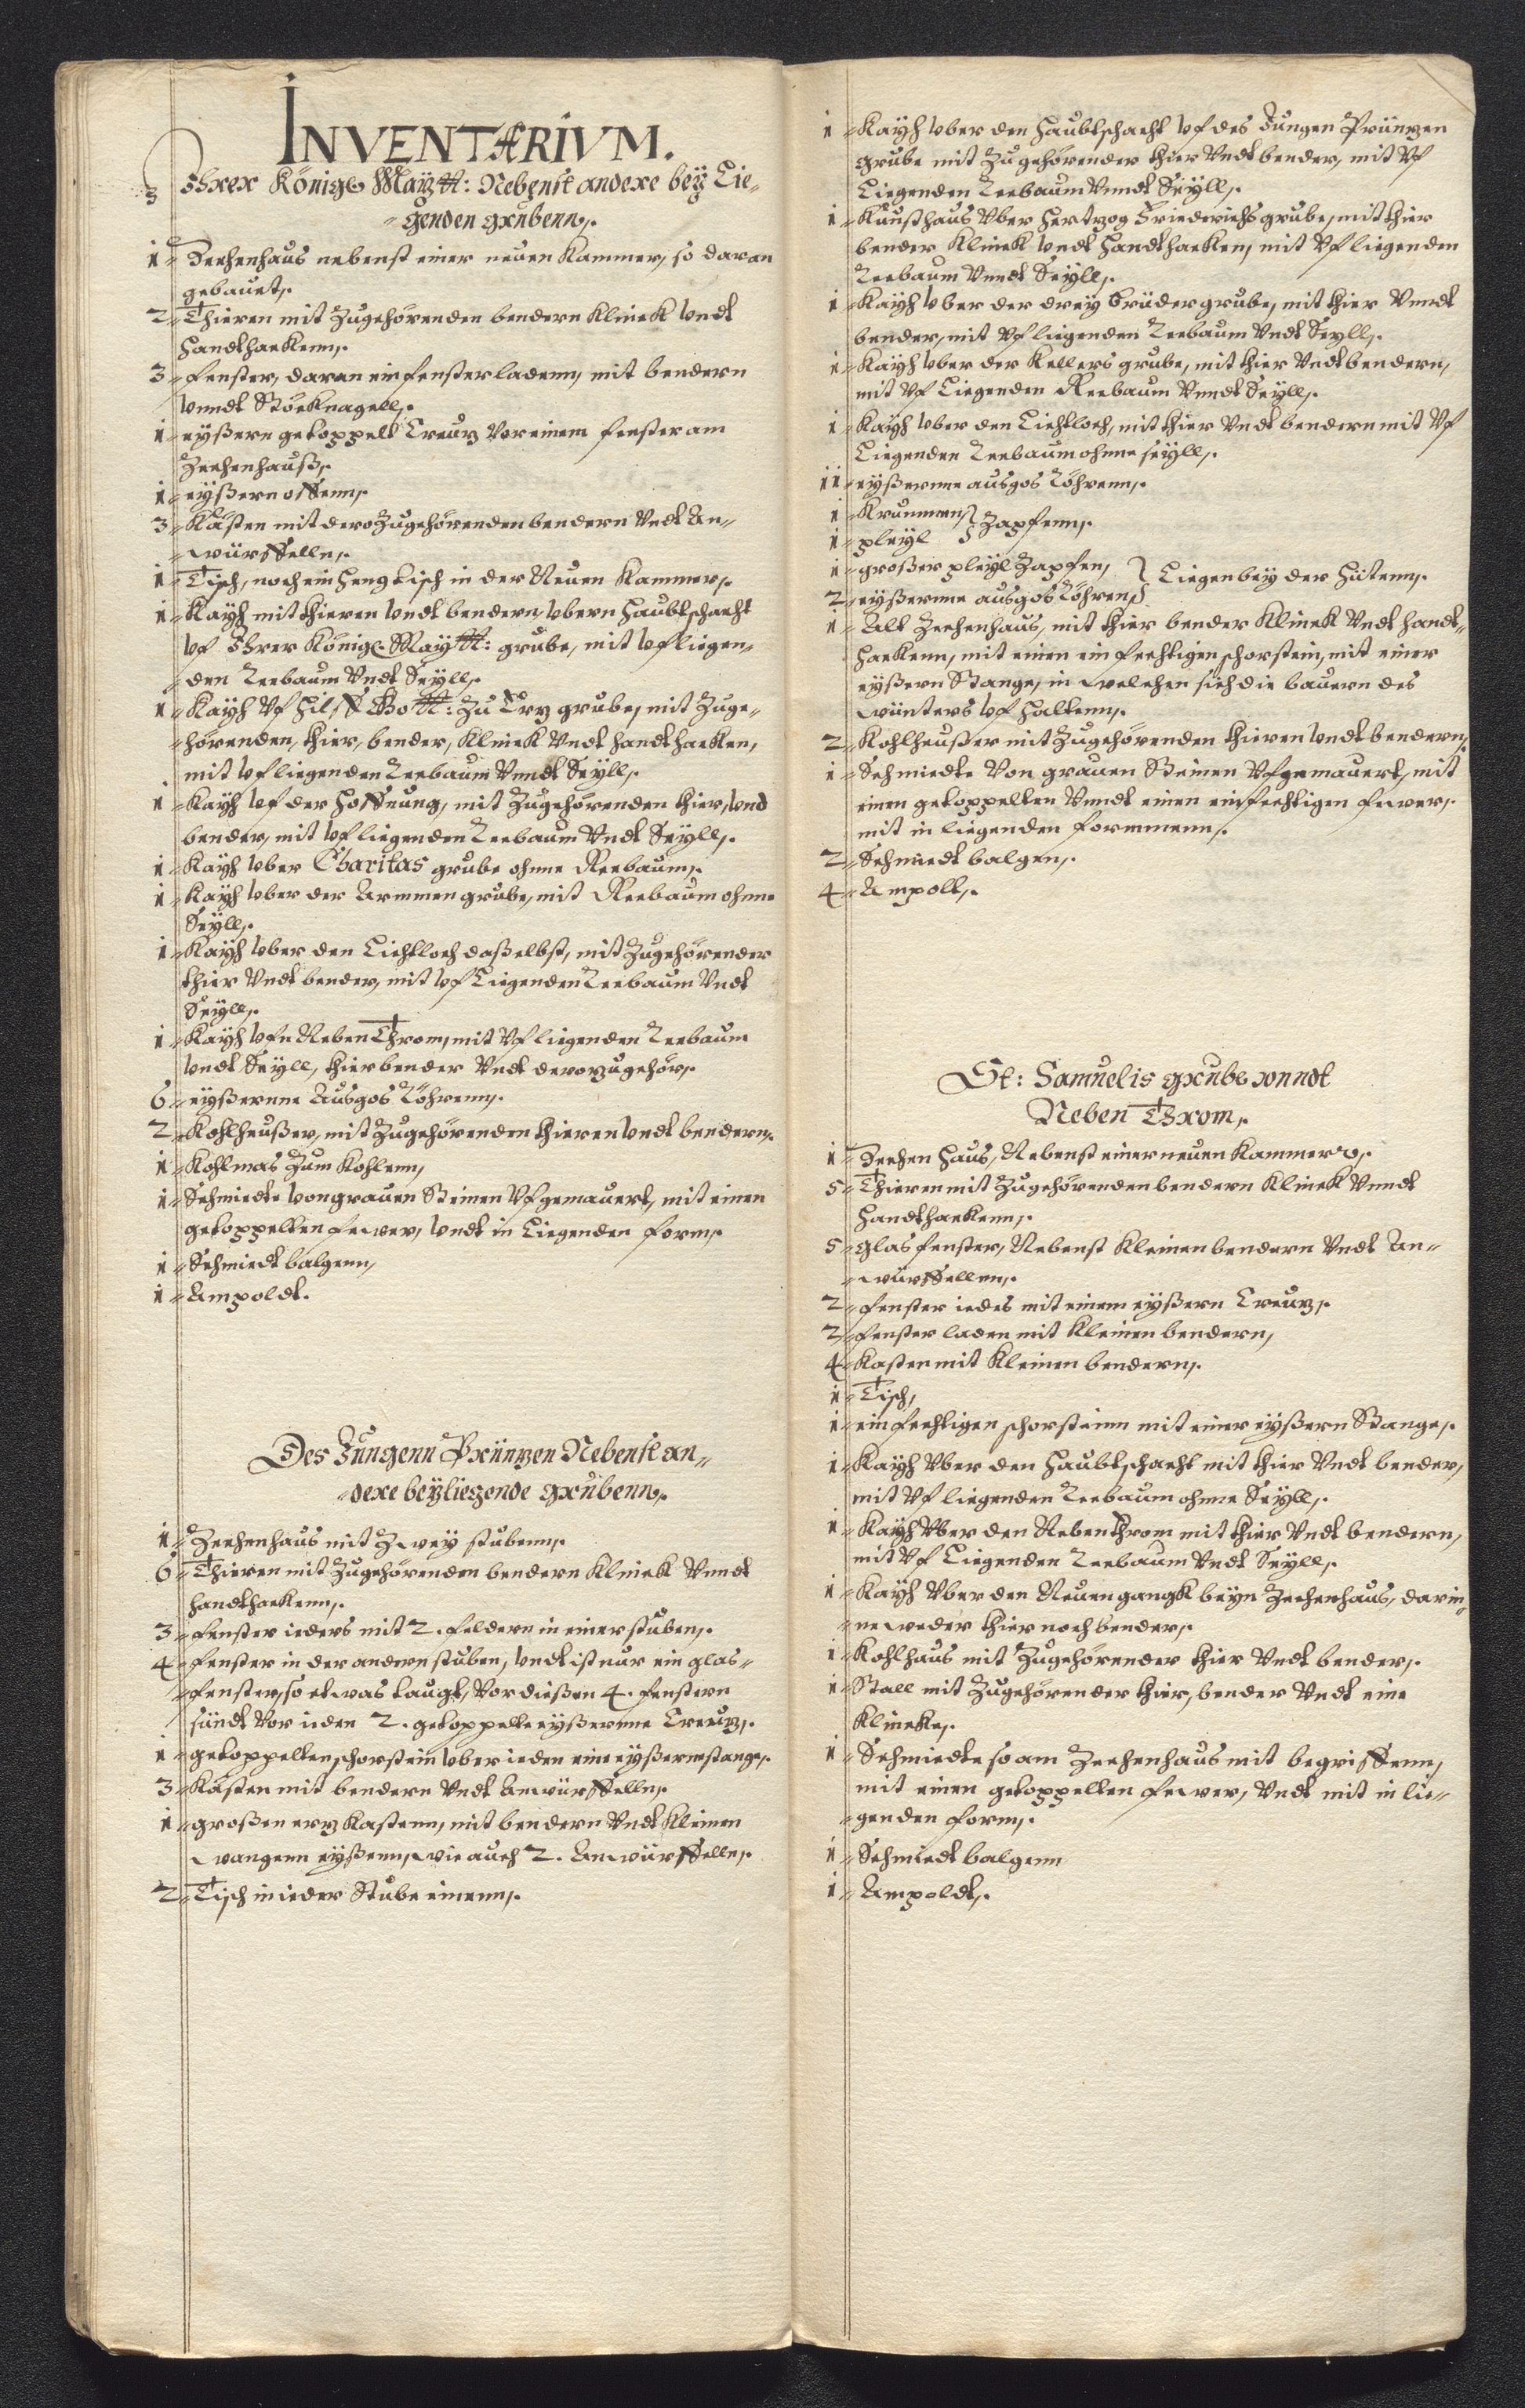 INVENTARIVM.
Ihrer Königl. Maytt: Nebenst andere bey Lie„
„genden grubenn,.
1 „ Zechenhaus nebenst einer neuen Kammer, so daran
gebauet,.
2 „ Thieren mit Zugehörenden bendern Klinck vndt
handthackenn,.
3 „ fenster, daran ein fensterladenn, mit bendern
vnndt Stöcknagell,.
1 „ eyßern gekoppelt Creutz Vor einem fenster am
Zechenhauß,.
1 „ eyßern offenn,.
3 „ Kästen mit dero Zugehörenden bendern Vndt An„
„würffelln,.
1 „ Tisch, noch ein heng tisch in der Neuen Kammer,.
1 „ Kayh mit thieren vndt bendern, vbern haubtschacht
vf Ihrer Königl. Maytt: grube, mit vf liegen„
„den Reebaum Vndt Seyll,.
1 „ Kayh Vf hilff Gott: Zu Ery grube, mit Zuge„
„hörenden, thier, bender, Klinck Vndt handthacken,
mit vf liegenden Reebaum Vnndt Seyll,.
1 „ Kayh vf der hoffnung, mit Zugehörenden thier, vnd
bender, mit vf liegenden Reebaum Vndt Seyll,.
1 „ Kayh vber Charitas grube ohne Reebaum,.
1 „ Kayh vber der Armmen grube, mit Reebaum ohne
Seyll,.
1 „ Kayh vber den Lichtloch daßelbst, mit Zugehörender
thier Vndt bender, mit vf Liegenden Reebaum Vndt
Seyll,.
1 „ Kayh vfn Neben Throm, mit Vf liegenden Reebaum
vndt Seyll, thier bender Vndt dero zugehör,.
6 „ eyßernne Ausgos Röhrenn,.
2 „ Kohlheußer, mit Zugehörenden thieren vndt bendern,.
1 „ Kohlmas Zum Kohlenn,
1 „ Schmiedte von grauen Steinen Vfgemauert, mit einen
gekoppelten fewer, vndt in Liegenden form,.
1 „ Schmiedt balgenn,
1 „ Ampoldt.
Des Jungenn Printzen Nebenst an„
„dere beyliegende grubenn,.
1 „ Zechenhaus mit Zwey stubenn,.
6 „ Thieren mit Zugehörenden bendern Klinck Vnndt
handthackenn,.
3 „ fenster ieders mit 2. feldern in einer stuben,.
4 „ fenster in der andern stuben, vndt ist nur ein glas„
„fenster, so etwas taugt, Vor dießen 4. fenstern
sündt Vor ieden 2. gekoppelte eyßernne Creutz,.
1 „ gekoppelten schorstein vber ieden eine eyßerne stange,.
3 „ Kästen mit bendern Vndt Anwürffelln,.
1 „ großen ertz Kastenn, mit bendern Vndt Kleinen
wangenn eyßenn, wie auch 2. Anwürffelln,.
2 „ Tisch in ieder Stube einenn,.
1 „ Kayh vber den haubtschacht vf des Jungen Printzen
grube mit Zugehörender thier Vndt bender, mit Vf
Liegenden Reebaum Vnndt Seyll,.
1 „ Kunsthaus Vber hertzog Friederichs grube, mit thier
bender Klinck vndt handthacken, mit Vf liegenden
Reebaum Vnndt Seyll,.
1 „ Kayh vber der drey brüder grube, mit thier Vnndt
bender, mit Vf liegenden Reebaum Vndt Seyll,.
1 „ Kayh vber der Kellers grube, mit thier Vndt bendern,
mit Vf Liegenden Reebaum Vnndt Seyll,.
1 „ Kayh vber den Lichtloch, mit thier Vndt bendern mit Vf
Liegenden Reebaum ohne seyll,.
11 „ eyßernne ausgos Röhrenn,.
1 „ Krummen } Zapfenn,.
1 „ pleyl
1 „ großer pleyl Zapfen, } Liegen bey der Hütenn,.
2 „ eyßernne ausgos Röhren
1 „ Alt Zechenhaus, mit thier bender Klinck Vndt handt„
hackenn, mit einen einfechtigen schorstein, mit einer
eyßern Stange, in welchen sich die bauern des
wünters vf haltenn,.
2 „ Kohlheußer mit Zugehörenden thieren vndt bendern,.
1 „ Schmiedte Von grauen Steinen Vfgemauert, mit
einen gekoppelten Vnndt einen einfechtigen fewer,.
mit in liegenden formmenn,.
2 „ Schmiedt balgen,.
4 „ Ampolt,.
St: Samuelis grube vnndt
Neben Throm,.
1 „ Zechen haus, Nebenst einer neuen Kammer,.
5 „ Thieren mit Zugehörenden bendern Klinck Vnndt
handthackenn,.
5 „ glas fenster, Nebenst Kleinen bendern Vndt An„
„würffellen,.
2 „ fenster iedes mit einem eyßern Creutz,.
2 „ fenster laden mit Kleinen bendern,
4 „ Kasten mit Kleinen bendern,.
1 „ Tisch,
1 „ einfechtigen schorsteinn mit einer eyßern Stange,.
1 „ Kayh Vber den haubtschacht mit thier Vndt bender,
mit Vf liegenden Reebaum ohne Seyll,.
1 „ Kayh Vber den Neben throm mit thier Vndt bendern,
mit Vf Liegenden Reebaum Vndt Seyll,.
1 „ Kayh Vber den Neuen gangk beyn Zechenhaus, darin„
„ne weder thier noch bender,.
1 „ Kohlhaus mit Zugehörender thier Vndt bender,.
1 „ Stall mit Zugehörender thier, bender Vndt eine
Klincke,.
1 „ Schmiedte so am Zechenhaus mit begriffenn,
mit einen gekoppelten fewer, Vndt mit in lie„
„genden form,.
1 „ Schmiedt balgenn
1 „ Ampoldt,.